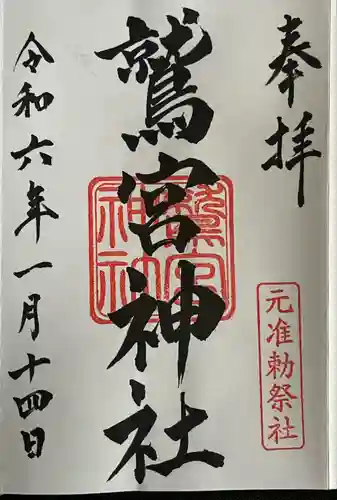 奉拝
元准勅祭社
鷲宮神社
令和六年一月十四日